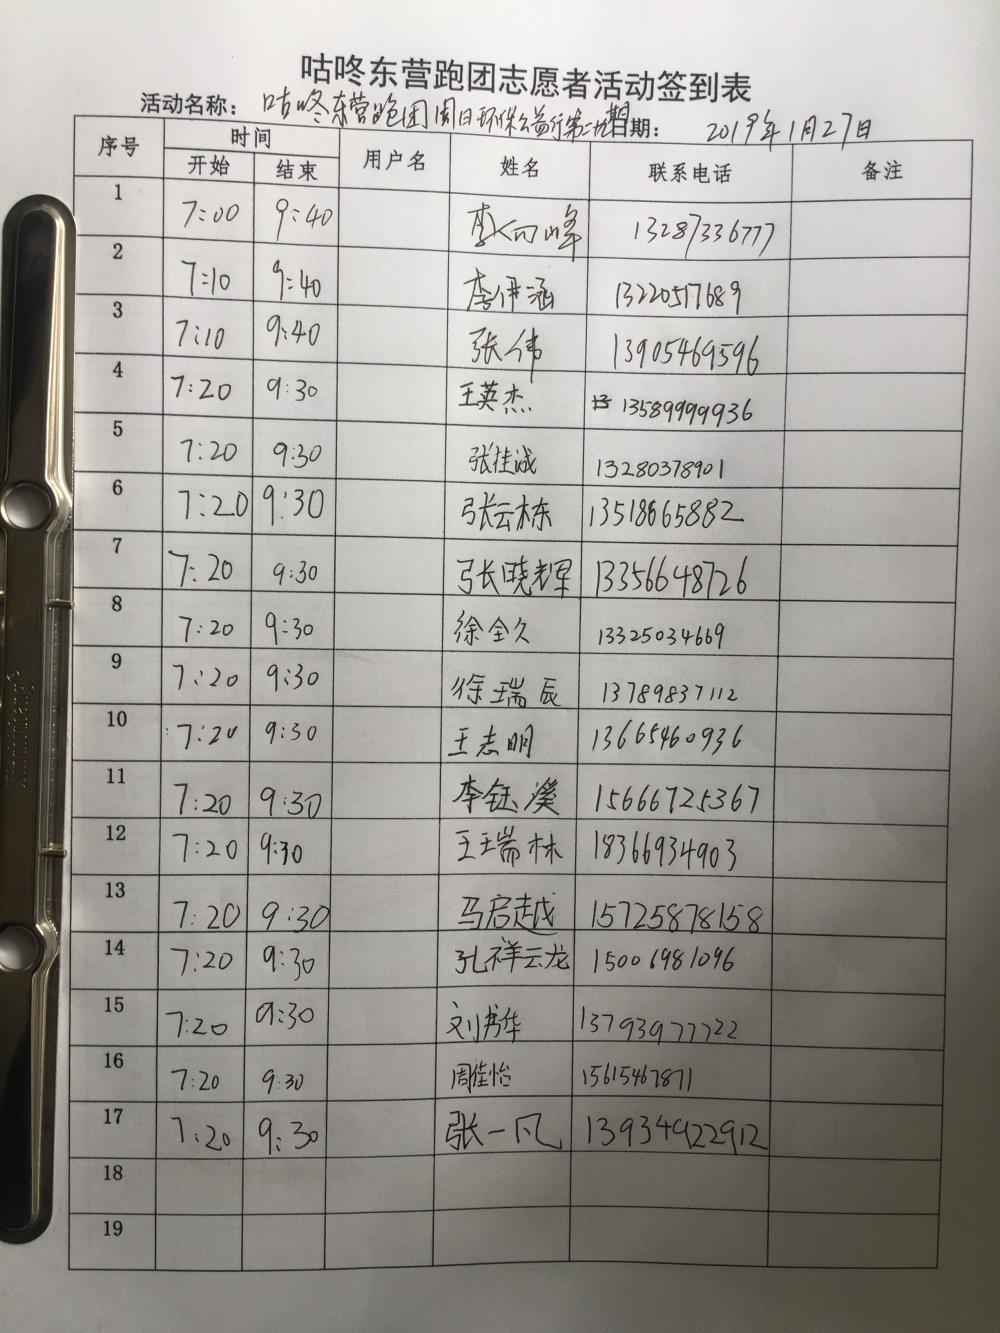 咕咚东营跑团志愿者活动签到表
活动名称： 咕咚东营跑团周日环保公益行第二九期 日期： 2019年1月27日
序号 时间 用户名 姓名 联系电话 备注
开始 结束
1 7:00 9:40 李向峰 13287336777
2 7:10 9:40 李伊涵 13220517689
3 7:10 9:40 张伟 13905469596
4 7:20 9:30 王英杰 13589999936
5 7:20 9:30 张佳诚 13280378901
6 7:20 9:30 张云栋 13518665882
7 7:20 9:30 张晓辉 13356648726
8 7:20 9:30 徐全久 13325034669
9 7:20 9:30 徐瑞辰 13789837112
10 7:20 9:30 王志明 13665460936
11 7:20 9:30 李钰溪 15666725367
12 7:20 9:30 王瑞林 18366934903
13 7:20 9:30 马启越 15725878158
14 7:20 9:30 孔祥云龙 15006981096
15 7:20 9:30 刘书华 13793977722
16 7:20 9:30 周佳怡 15615467871
17 7:20 9:30 张一凡 13934922912
18
19